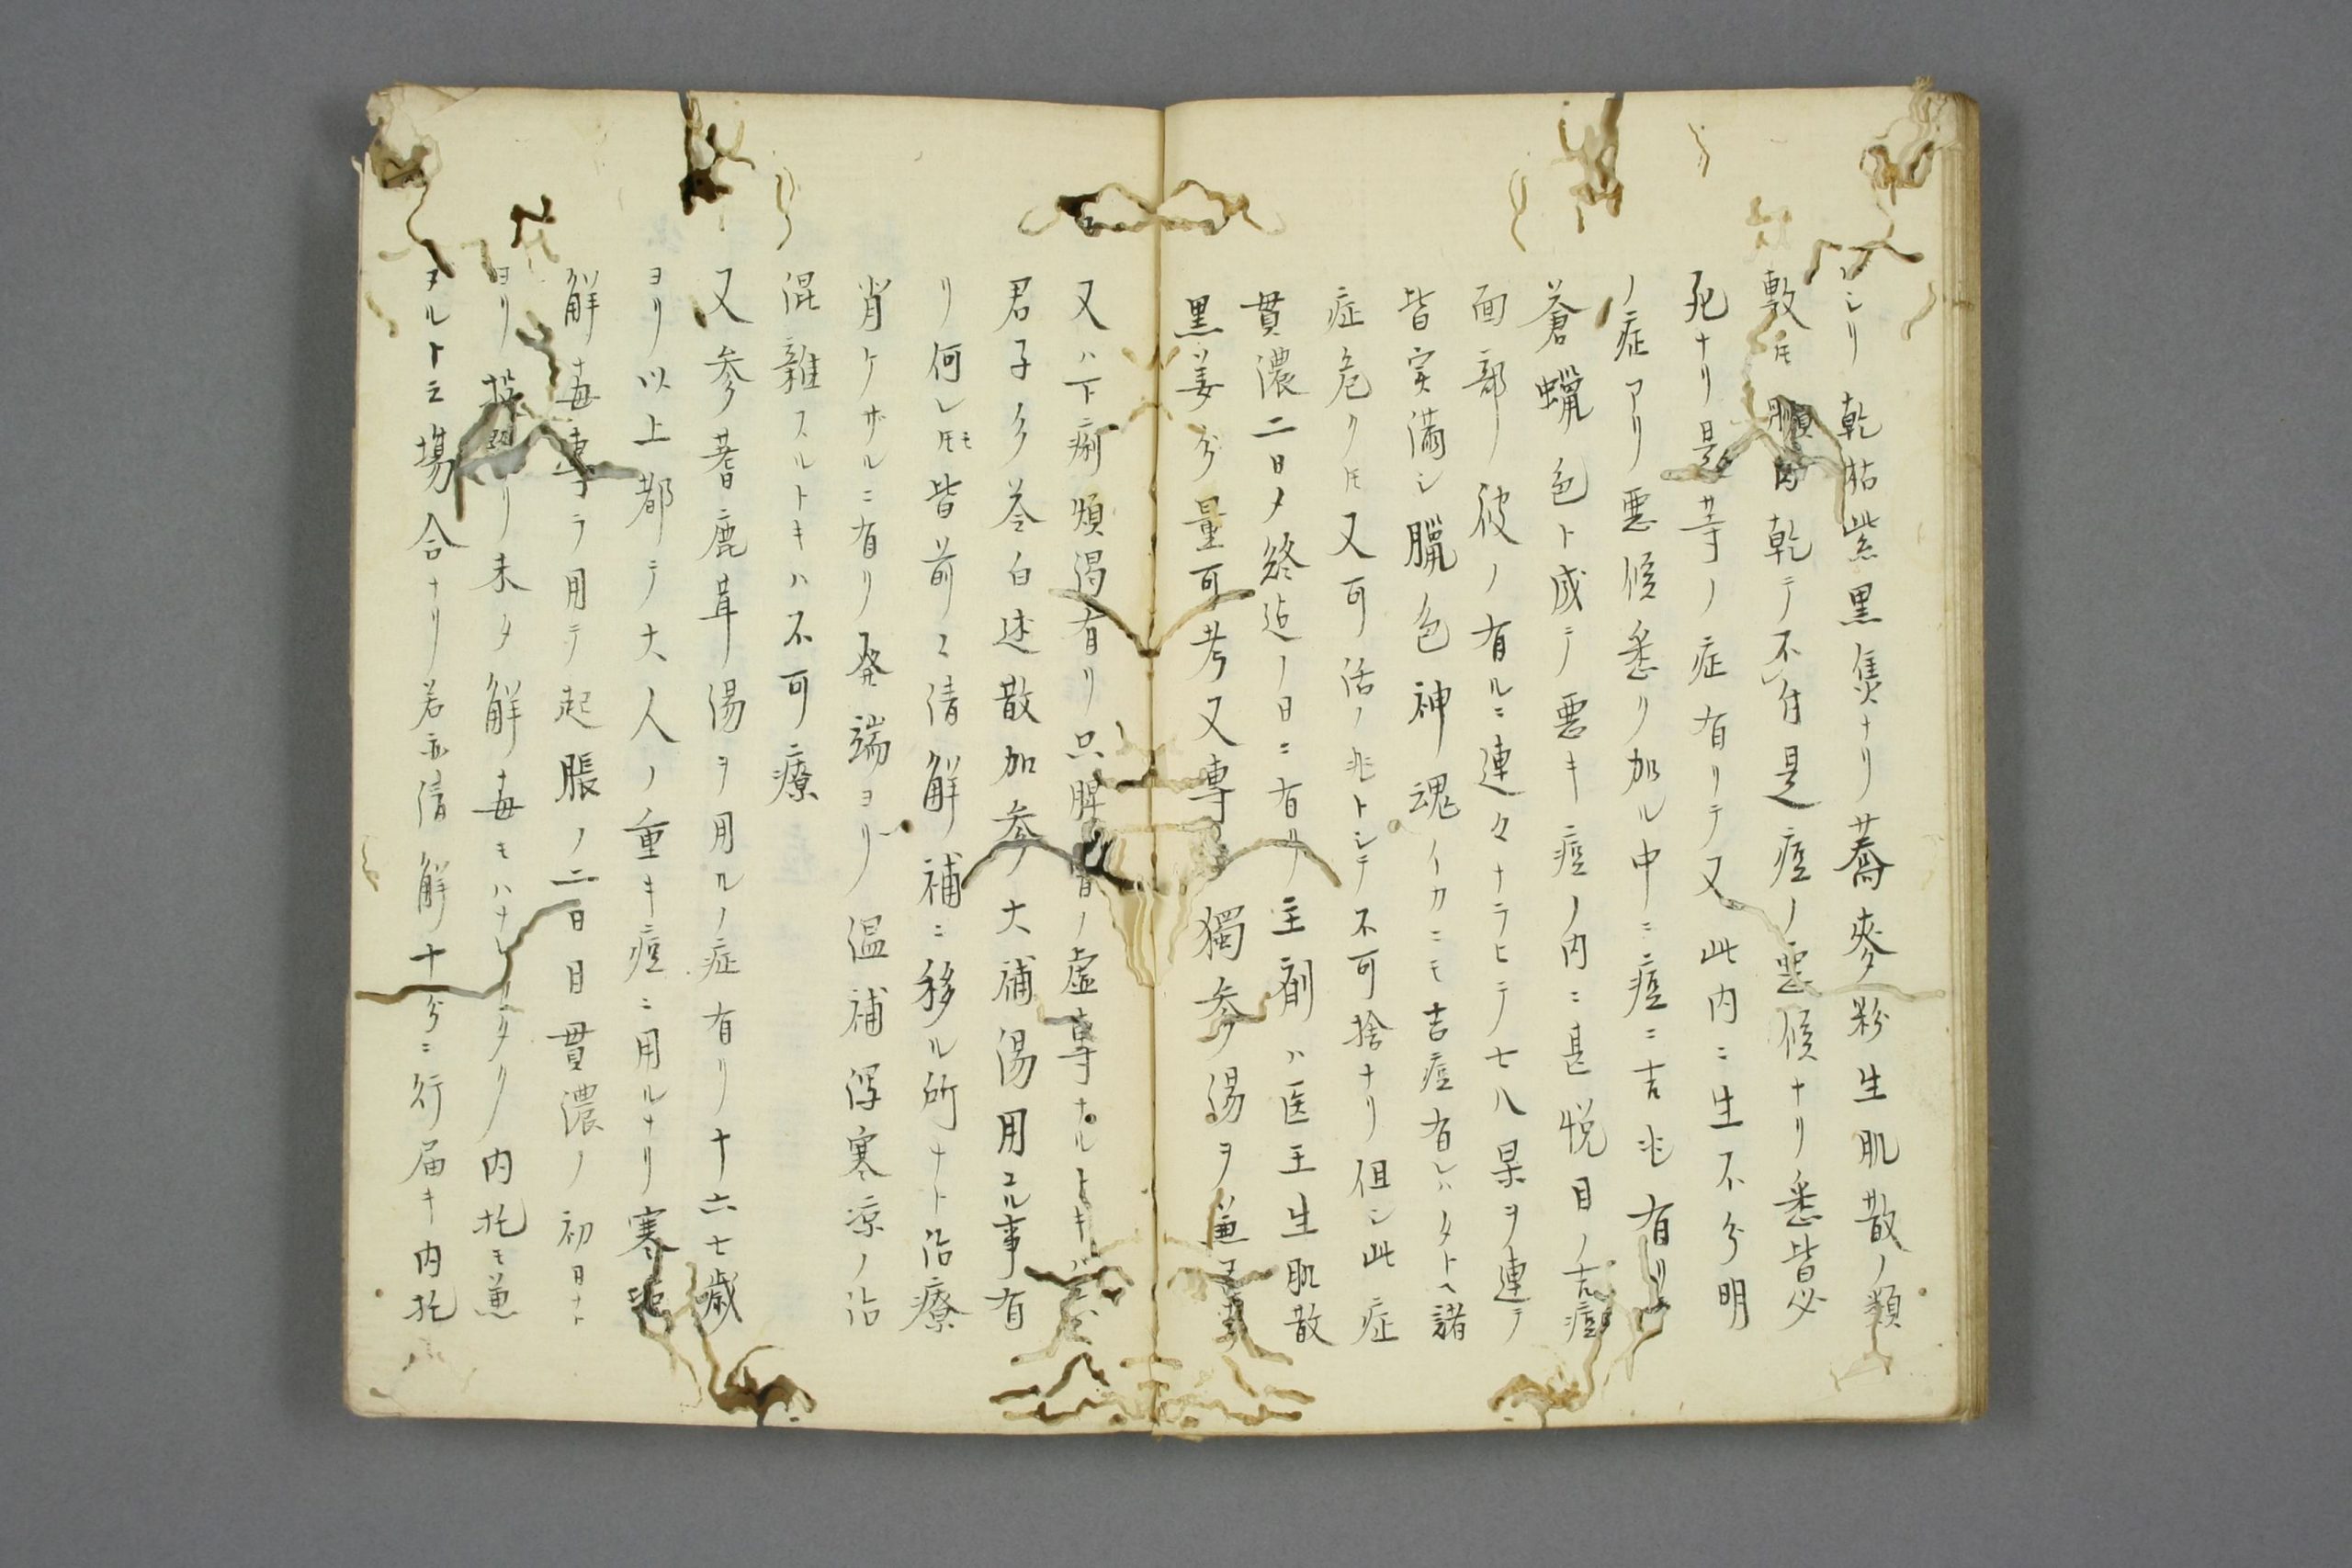 シリ乾枯紫黒焦ナリ蕎麥粉生肌散ノ類
敷𪜈順肉乾テ不付是痘ノ悪候ナリ悉皆必
死ナリ是等ノ症有リテ又此内ニ生不分明
ノ症アリ悪候悉ク加ル中ニ痘ニ吉兆有リ
蒼蠟色ト成テ悪キ痘ノ内ニ甚悦目ノ吉痘
面部彼ノ有ルニ連々ナラヒテ七八果ヲ連テ
皆実満シ臘色神魂イカニモ吉痘有レハタトヘ諸
症危ク𪜈又可活ノ兆トシテ不可捨ナリ但シ此症
貫濃二日メ終迄ノ日ニ有リ主剤ハ医王生肌散
黒姜分量可考又専ラ獨参湯ヲ兼
又ハ下痢煩渇有リ只脾胃ノ虚専ナルトキハ
君子ク苓白朮散加参大補湯用ユル事有
リ何レ𪜈モ皆前ニ清解補ニ移ル所ナト治療
肖ケザルニ有リ発端ヨリ温補瀉寒凉ノ治
混雑スルトキハ不可療
又参蓍鹿茸湯ヲ用ルノ症有リ十六七歳
ヨリ以上都テ大人ノ重キ痘ニ用ルナリ寒
解毒専ラ用テ起脹ノ二日目貫濃ノ初日ナト
ヨリ リ未タ解毒モハナレ タク内托モ兼
タルト云塲合ナリ若亦清解十分ニ行届キ内托